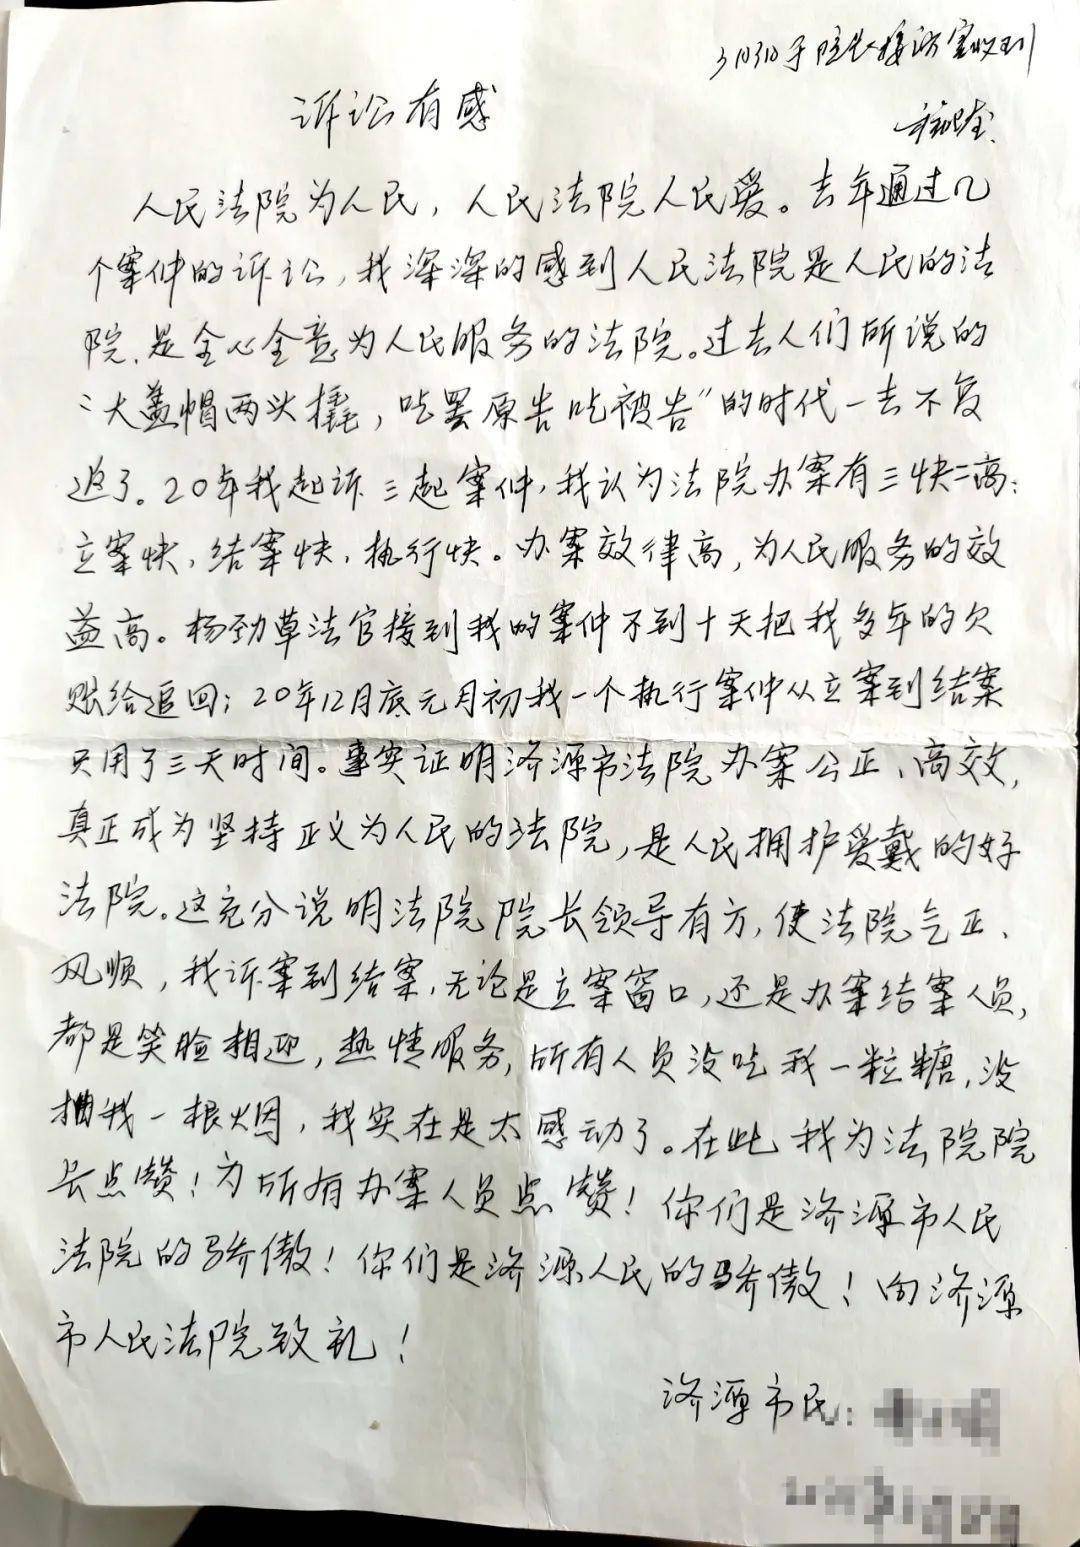 3月3日于院长接访室收到
诉讼有感
人民法院为人民，人民法院人民爱。去年通过几
个案件的诉讼，我深深的感到人民法院是人民的法
院，是全心全意为人民服务的法院。过去人们所说的
“大盖帽两头撬，吃罢原告吃被告”的时代一去不复
返了。20年我起诉三起案件，我认为法院办案有三快二高：
立案快，结案快，执行快。办案效律高，为人民服务的效
益高。杨劲草法官接到我的案件不到十天把我多年的欠
账给追回；20年12月底元月初我一个执行案件从立案到结案
只用了三天时间。事实证明济源市法院办案公正、高效，
真正成为坚持正义为人民的法院，是人民拥护爱戴的好
法院。这充分说明法院院长领导有方，使法院气正、
风顺，我诉案到结案，无论是立案窗口，还是办案结案人员，
都是笑脸相迎，热情服务，所有人员没吃我一粒糖，没
抽我一根烟，我实在是太感动了。在此我为法院院
长点赞！为所有办案人员点赞！你们是济源市人民
法院的骄傲！你们是济源人民的骄傲！向济源
市人民法院致礼！
济源市民：